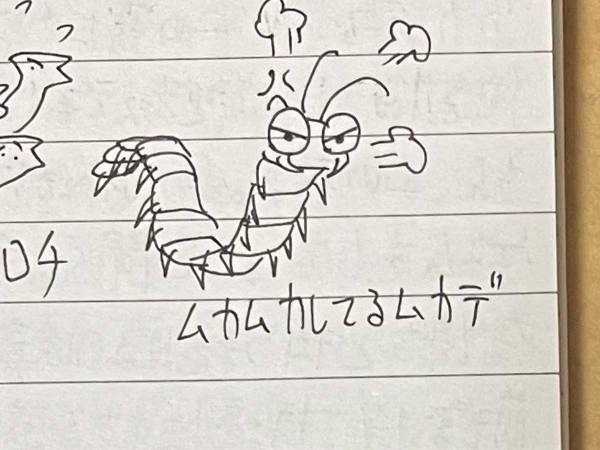 ロチ
ムカムカしてるムカデ